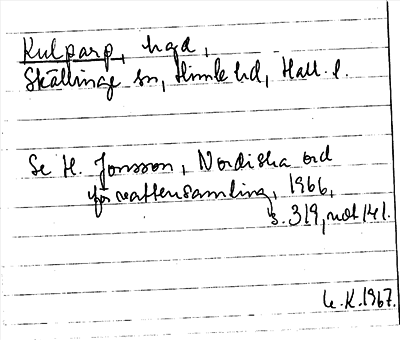 Kulparp, hgd,
Skällinge sn, Himle hd, Hall. l.
Se H. Jonsson, Nordiska ord
för vattensamling, 1966,
s. 319, not 141.
U.K. 1967.